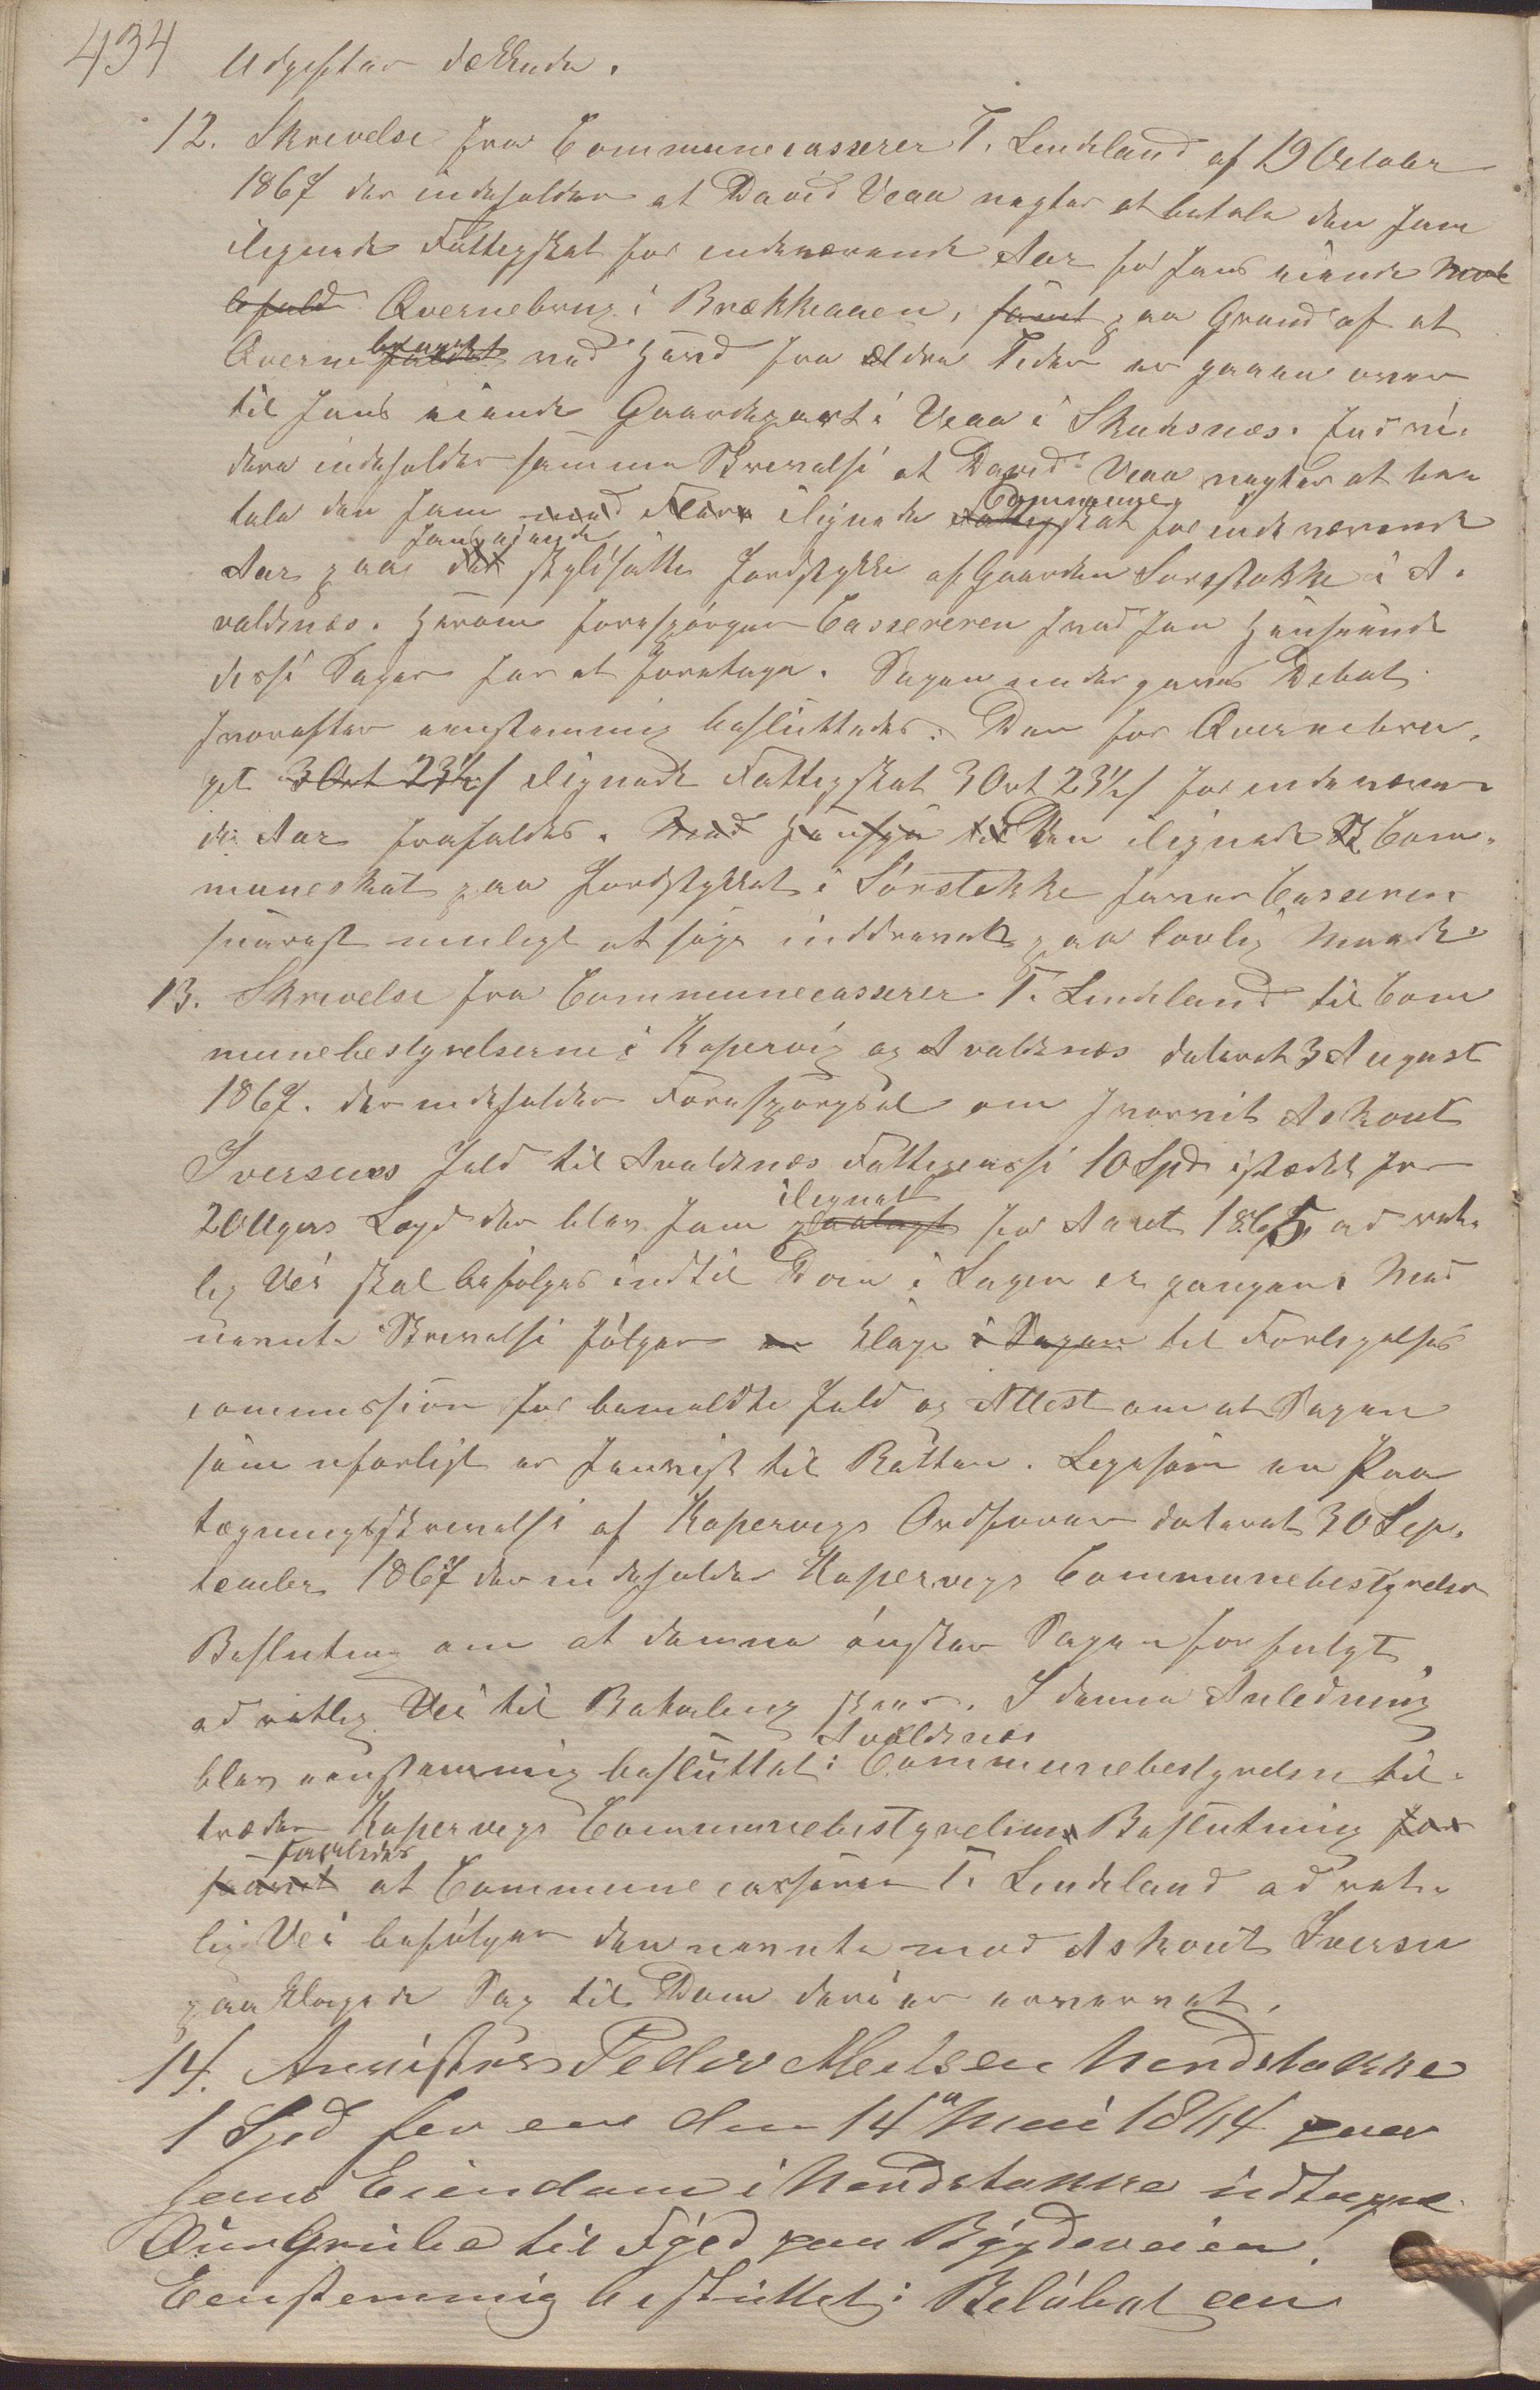 434
Udgifter dækkende.
12. Skrivelse fra Communecasserer T. Lindeland af 19 October
1867 der indeholder at David Veaa nægter at betale den ham
ilignede Fattigskat for indeværende Aar for hans eiende
Qvernebrug i Brækkeaaen, samt paa Grund af at
Qvernebruget ved Hævd fra ældre Tider er gaaen over
til hans eiende Gaardepart i Veaa i Skudesnæs. End vi-
dere indeholder samme Skrivelse at David Veaa nægter at be-
tale den ham med flere ilignede Communeskat for indeværende
Aar paa det hans eiende skyldsatte Jordstykke af Gaarden Sørstokke i A-
valdsnæs. Herom forespørger Cassereren hvad han henseende
disse Sager har at foretage. Sagen undergaves Debat
hvorefter eenstemmig besluttedes: Den for Qvernebru-
get 3 Ort 23½ s ilignede Fattigskat 3 Ort 23½ s for indeværen-
de Aar frafaldes. Med Hensyn til Den ilignede Com-
muneskat paa Jordstykket i Sørstokke haver Casseren
snarest muligt at søge inddrevet paa lovlig Maade.
13. Skrivelse fra Communecasserer T. Lindeland til Com
munebestyrelserne i Kopervig og Avaldsnes dateret 3 August
1867. der indeholder Forespørgsel om hvorvit Askout
Iversens Gjeld til Avaldsnæs Fattigcasse 10 Spd istedet for
20 Ugers Lægd der blev ham paalagt ilignet for Aaret 1865 ad ret-
lig Vei skal befølges indtil Dom i Sagen er gangen. Med
nævnte Skrivelse følger en Klage i Sagen til Forligelses
commission for bemeldte Gjeld og Attest om at Sagen
som uforligt er henvist til Retten. Ligesom en Paa
tegningsskrivelse af Kopervigs Ordfører dateret 30 Sep-
tember 1867 der indeholder Kopervigs Communebestyrelse
Beslutning om at denne ønsker Sagen forfulgt
ad retlig Vei til Betaling skeer. I denne Anledning
blev eenstemmig besluttet: Avaldsnæs Communebestyrelse til-
træder Kopervigs Communebestyrelses Beslutning for
saavidt saaledes at Communecasserer T. Lindeland ad ret-
lig Vei befølger den nævnte mod Askout Iversen
paaklagede Sag til Dom deri er erværvet.
14. Anvistes Peder Nielsen Nordstokke
1 Spd for en den 14 Mai 1864 paa
hans Eiendom i Nordstokke udtagne
Grube til Fyld paa Bygdeveien.
Eenstemmig besluttet: Beløbet en